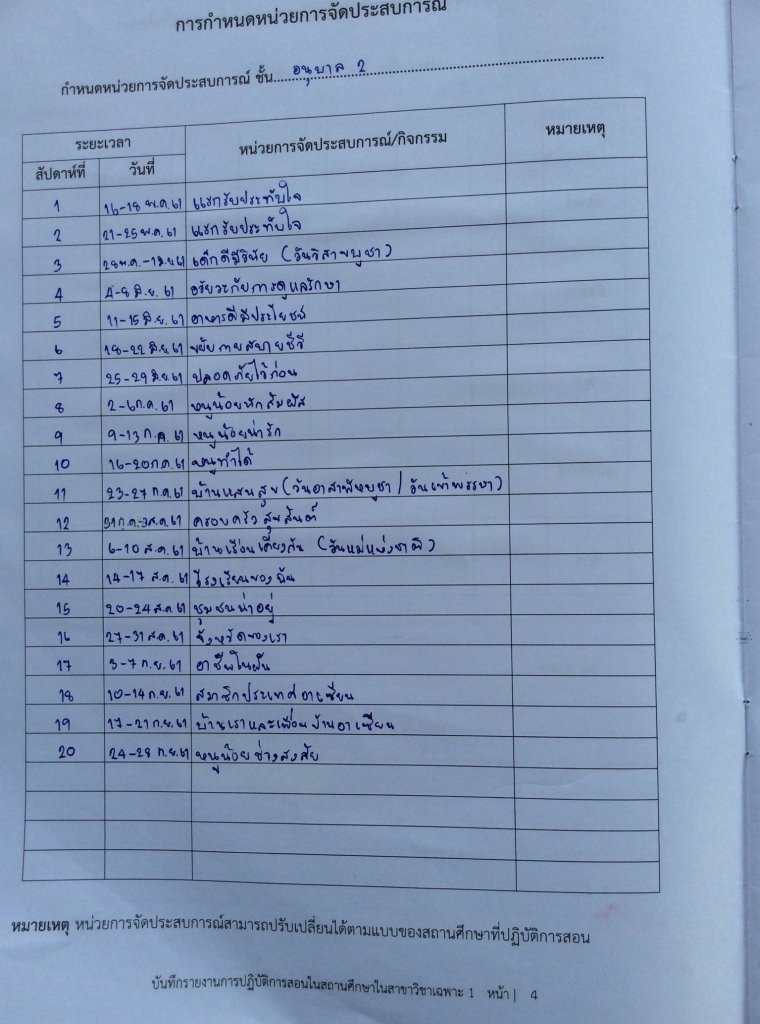 การกำหนดหน่วยการจัดประสบการณ์
กำหนดหน่วยการจัดประสบการณ์ ชั้น อนุบาล 2
ระยะเวลา หน่วยการจัดประสบการณ์/กิจกรรม หมายเหตุ
สัปดาห์ที่ วันที่
1 16-18 พ.ค. 61 แรกรับประทับใจ
2 21-25 พ.ค. 61 แรกรับประทับใจ
3 28 พ.ค. -1 มิ.ย 61 เด็กดีมีวินัย (วันวิสาขบูชา)
4 4-8 มิ.ย. 61 อวัยวะกับการดูแลรักษา
5 11-15 มิ.ย. 61 อาหารดีมีประโยชน์
6 18-22 มิ.ย. 61 ขยับกายสบายชีวี
7 25-29 มิ.ย 61 ปลอดภัยไว้ก่อน
8 2-6 ก.ค. 61 หนูน้อยนักสัมผัส
9 9-13 ก.ค. 61 หนูน้อยน่ารัก
10 16-20 ก.ค. 61 หนูทำได้
11 23-27 ก.ค. 61 บ้านแสนสุข (วันอาสาฬหบูชา / วันเข้าพรรษา)
12 31 ก.ค.-3 ส.ค. 61 ครอบครัวสุขสันต์
13 6-10 ส.ค. 61 บ้านเรือนเคียงกัน (วันแม่แห่งชาติ)
14 14-17 ส.ค. 61 โรงเรียนของฉัน
15 20-24 ส.ค 61 ชุมชนน่าอยู่
16 27-31 ส.ค. 61 จังหวัดของเรา
17 3-7 ก.ย. 61 อาชีพในฝัน
18 10-14 ก.ย. 61 สมาชิกประเทศอาเซียน
19 17-21 ก.ย. 61 บ้านเราและเพื่อนบ้านอาเซียน
20 24-28 ก.ย. 61 หนูน้อยช่างสงสัย
หมายเหตุ หน่วยการจัดประสบการณ์สามารถปรับเปลี่ยนได้ตามแบบของสถานศึกษาที่ปฏิบัติการสอน
บันทึกรายงานการปฏิบัติการสอนในสถานศึกษาในสาขาวิชาเฉพาะ 1 หน้า | 4